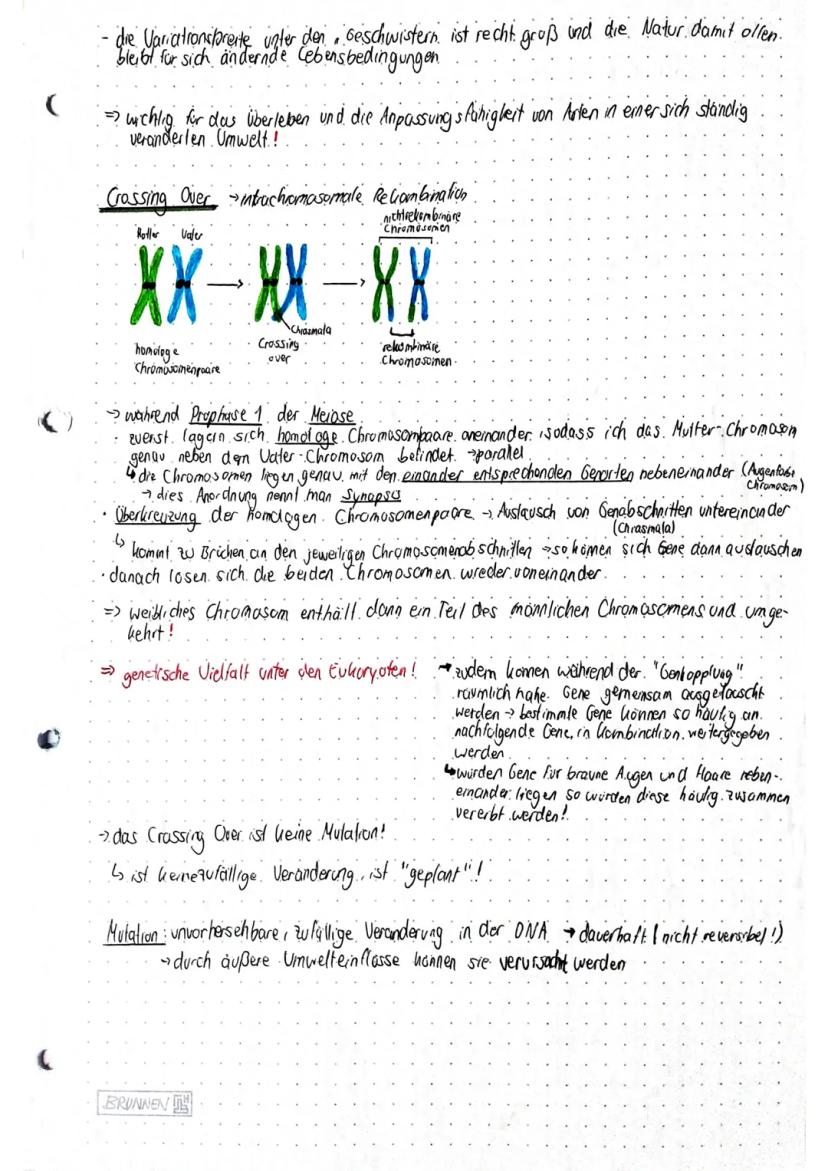 - die Variationsbreite unter den "Geschwistern" ist recht groß und die Natur damit offen
bleibt für sich ändernde Lebensbedingungen
=> wichtig für das Überleben und die Anpassungsfähigkeit von Arten in einer sich ständig
verändernden Umwelt!
Crossing Over → intrachromosomale Rekombination
nichtrekombinäre
Chromosomen
Mutter Vater
Chiasmata
homologe
Chromosomenpaare
Crossing
over
rekombinäre
Chromosomen
→ während Prophase 1 der Meiose
· zuerst lagern sich homologe Chromosompaare aneinander, sodass sich das Mutter-Chromosom
genau neben dem Vater-Chromosom befindet → parallel
↳ die Chromosomen liegen genau mit den einander entsprechenden Genorten nebeneinander (Augenfarbe
Chromosom)
→ dies Anordnung nennt man Synapsis
· Überkreuzung der homologen Chromosomenpaare → Austausch von Genabschnitten untereinander
(Chiasmata)
↳ kommt zu Brüchen an den jeweiligen Chromosomenabschnitten → so können sich Gene dann austauschen
· danach lösen sich die beiden Chromosomen wieder voneinander
=> weibliches Chromosom enthält dann ein Teil des männlichen Chromosomens und umge-
kehrt!
=> genetische Vielfalt unter den Eukaryoten!
→ zudem können während der "Genkopplung"
räumlich nahe Gene gemeinsam ausgetauscht
werden → bestimmte Gene können so häufig an
nachfolgende Gene in Kombination weitergegeben
werden
↳ würden Gene für braune Augen und Haare neben-
einander liegen so würden diese häufig zusammen
vererbt werden!
→ das Crossing Over ist keine Mutation!
↳ ist keine zufällige Veränderung, ist "geplant"!
Mutation: unvorhersehbare, zufällige Veränderung in der DNA → dauerhaft (nicht reversibel!)
→ durch äußere Umwelteinflüsse können sie verursacht werden
BRUNNEN